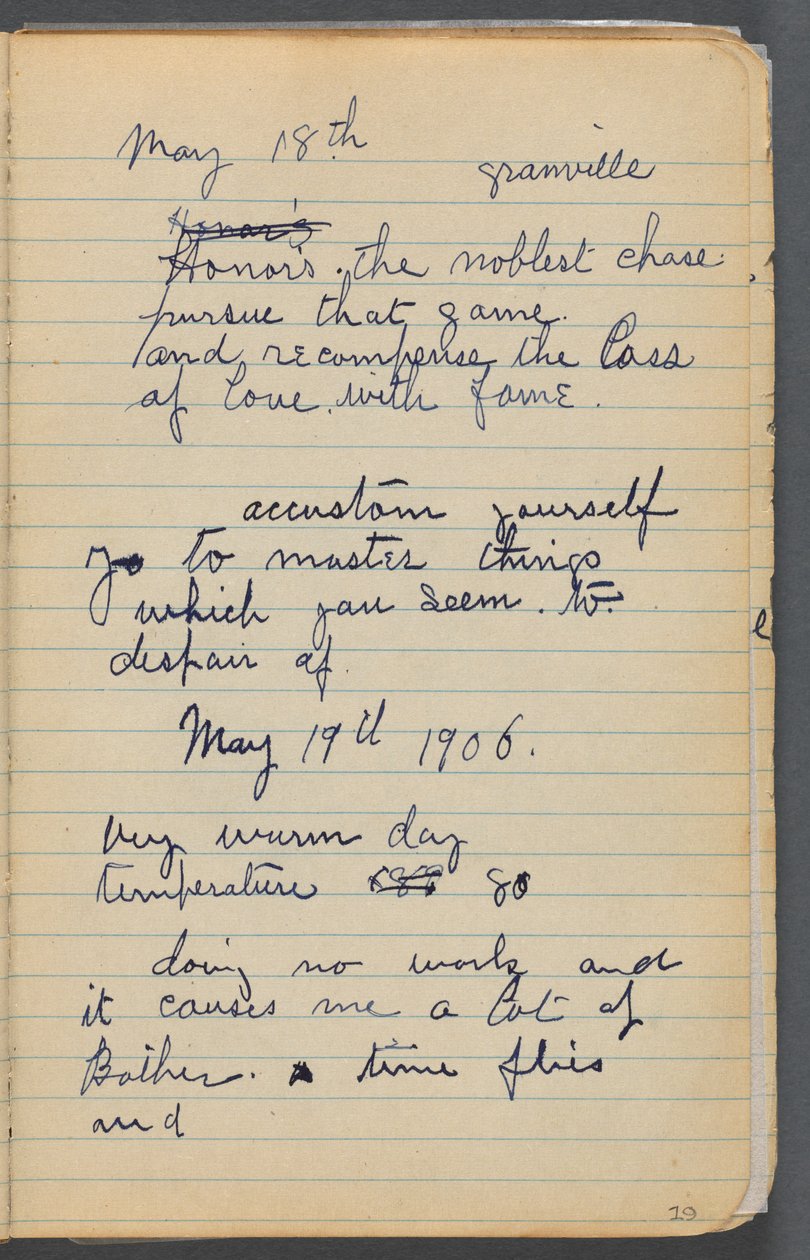 May 18th
granville
Honor's
Honor's the noblest chase
pursue that game.
and recompense the loss
of love. with fame.
accustom yourself
yo to master things
which you seem. to.
despair of.
May 19th 1906.
Very warm day
temperature 80
doing no work and
it causes me a lot of
Bother. time flies
and
19